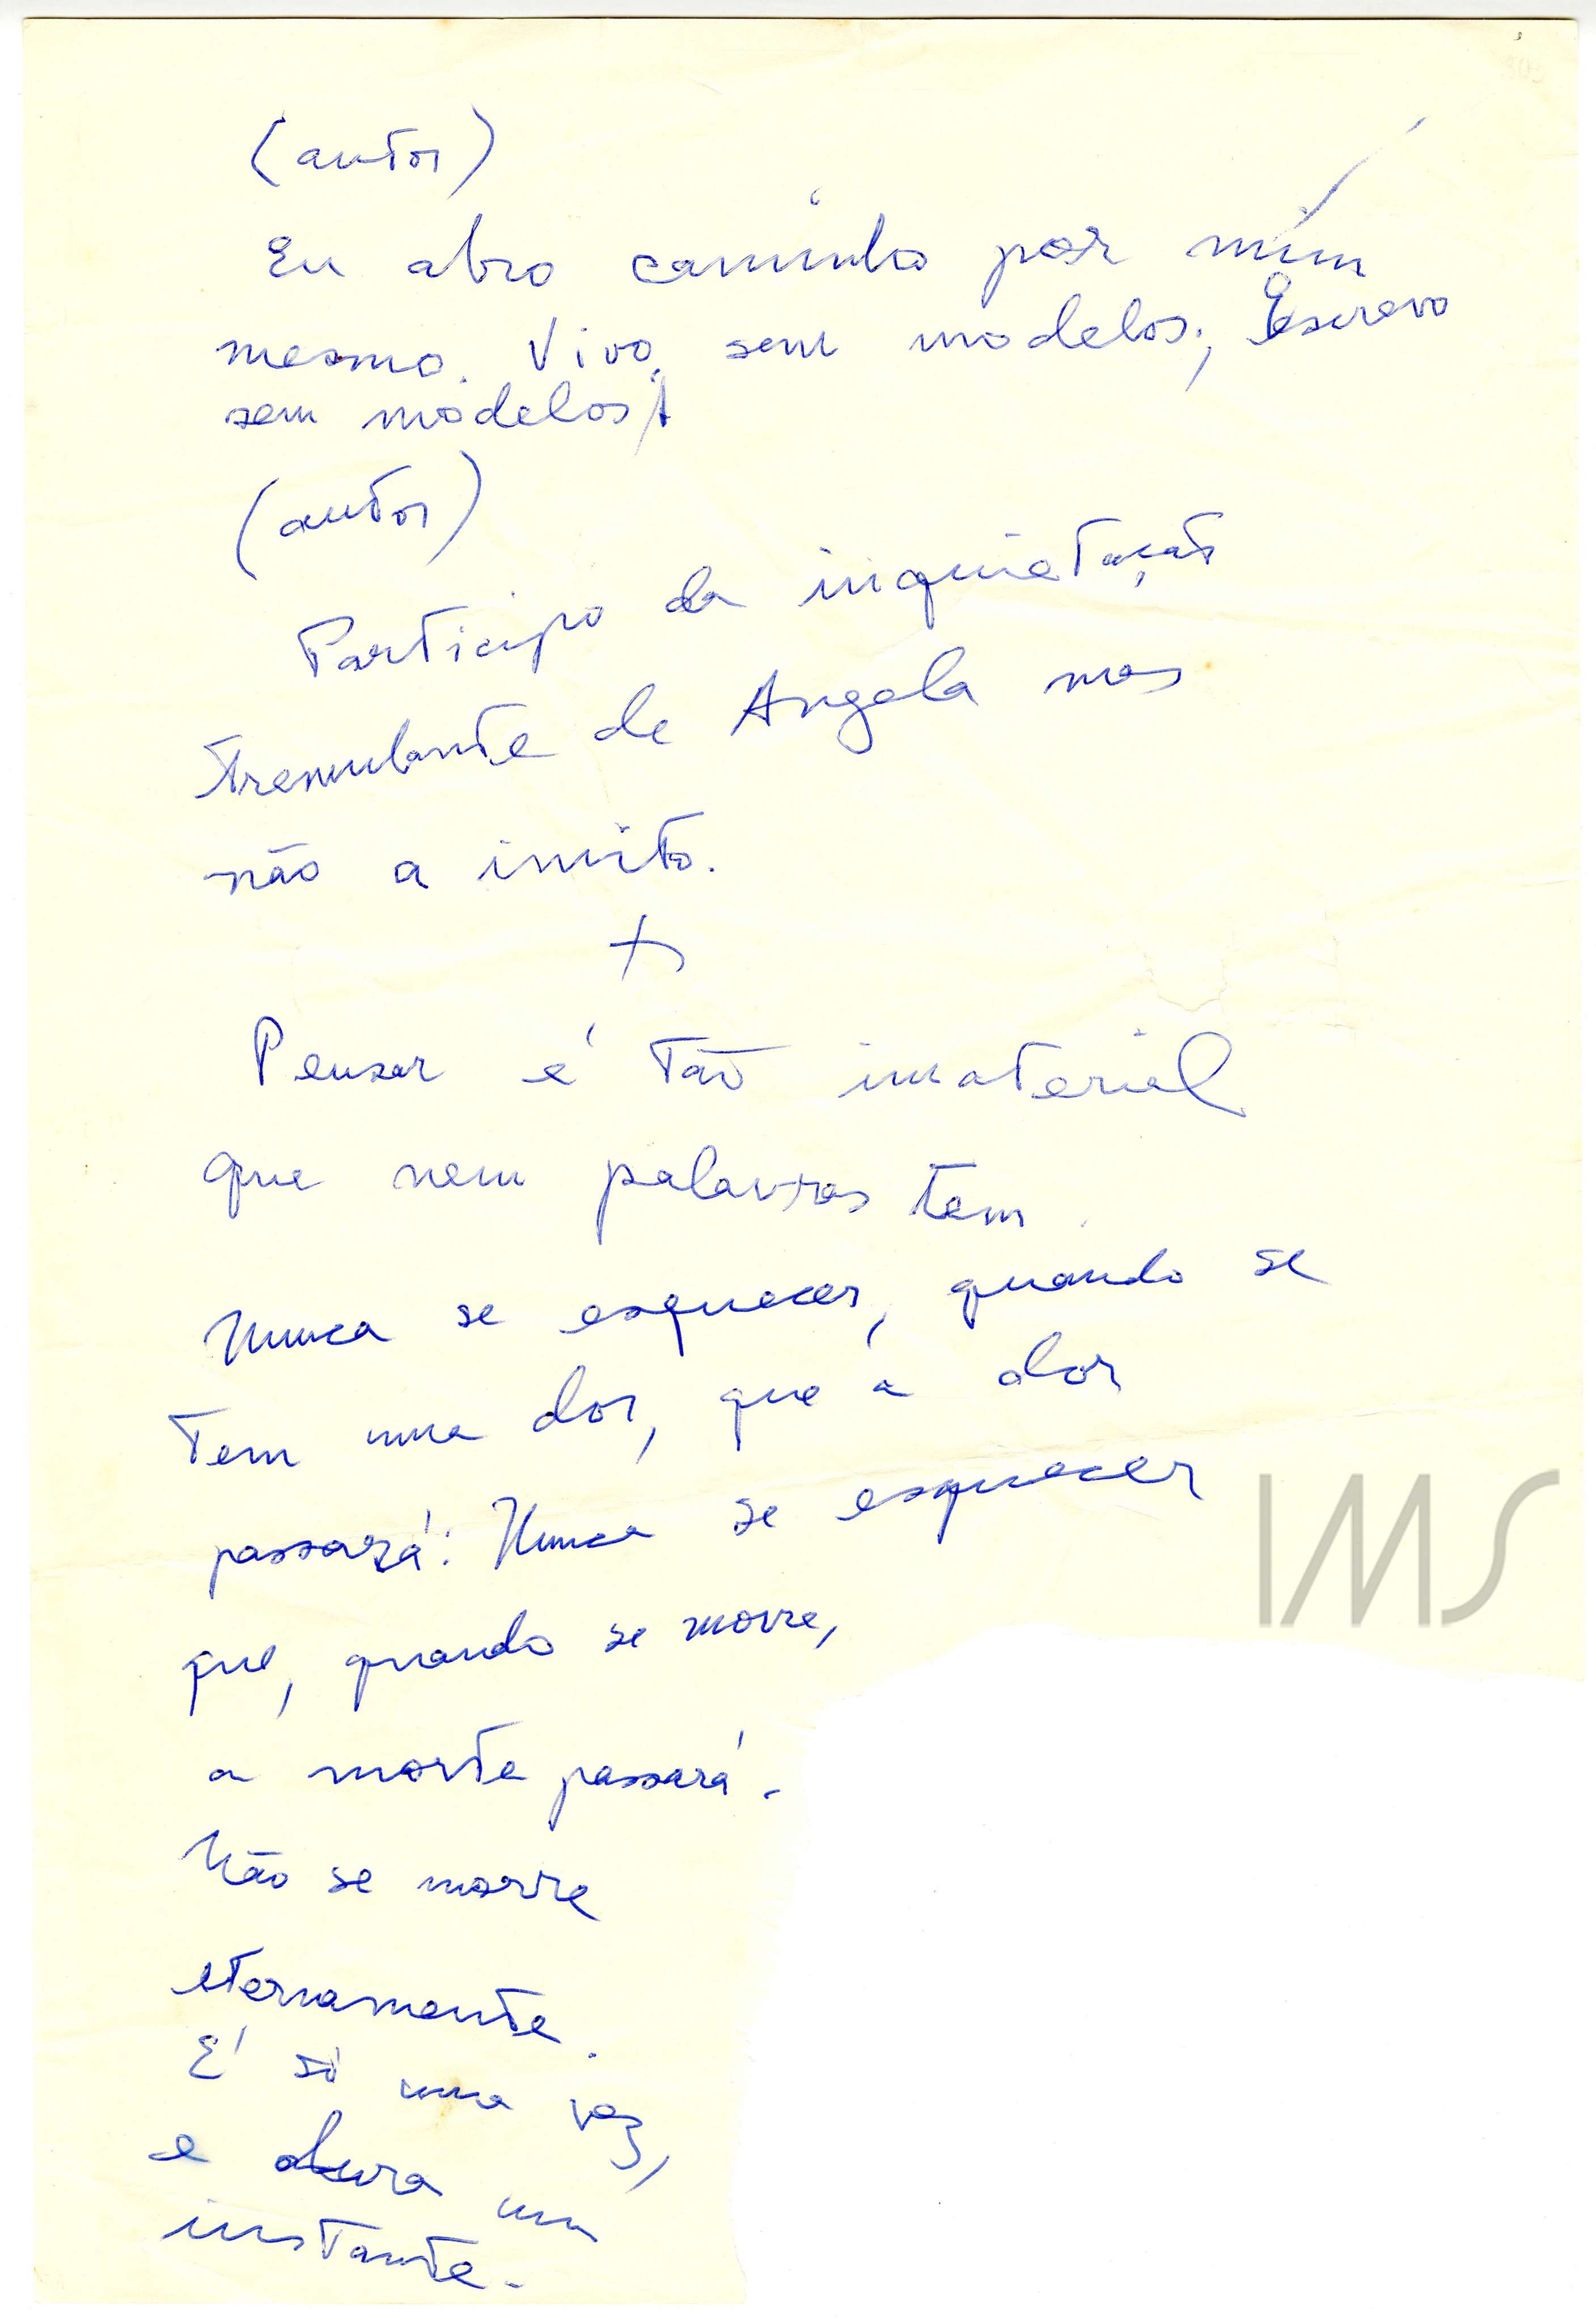 (autor)
Eu abro caminho por mim
mesmo. Vivo sem modelos, Escrevo
sem modelos
(autor)
Participo da inquietação
tremulante de Angela mas
não a imito.
Pensar é tão imaterial
que nem palavras tem.
Nunca se esquecer, quando se
tem uma dor, que a dor
passará: Nunca se esquecer
que, quando se morre,
a morte passará.
Não se morre
eternamente.
É só uma vez,
e dura um
instante.
IMS